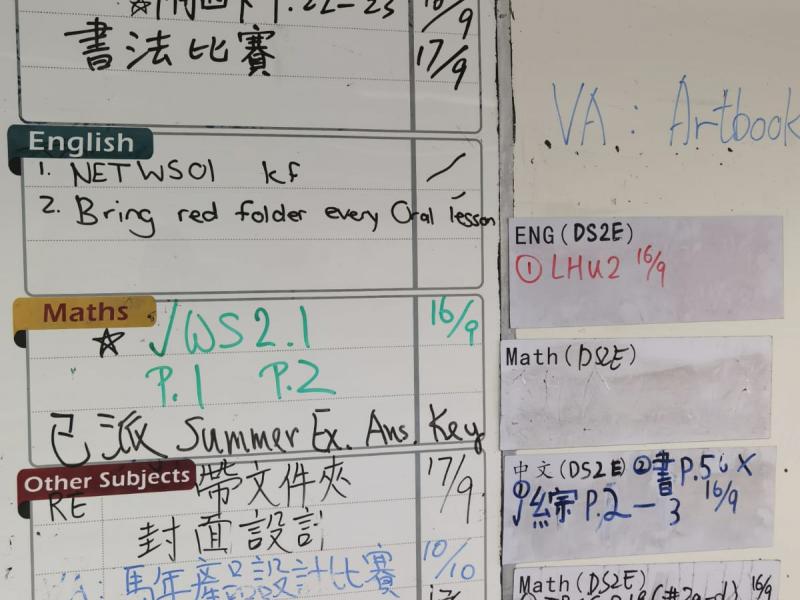 P.22-23 16/9
書法比賽 17/9
English
1. NETWS01 kf /
2. Bring red folder every Oral lesson
Maths
☆ √WS2.1 16/9
P.1 P.2
已派 Summer Ex. Ans. Key
Other Subjects
RE 帶文件夾 17/9
封面設計
馬年產品設計比賽 10/10
VA : Artbook
ENG(DS2E)
① LHU2 16/9
Math(DS2E)
中文(DS2E) ②書 P.56 X
① √綜 P.2-3 16/9
Math(DS2E) 16/9